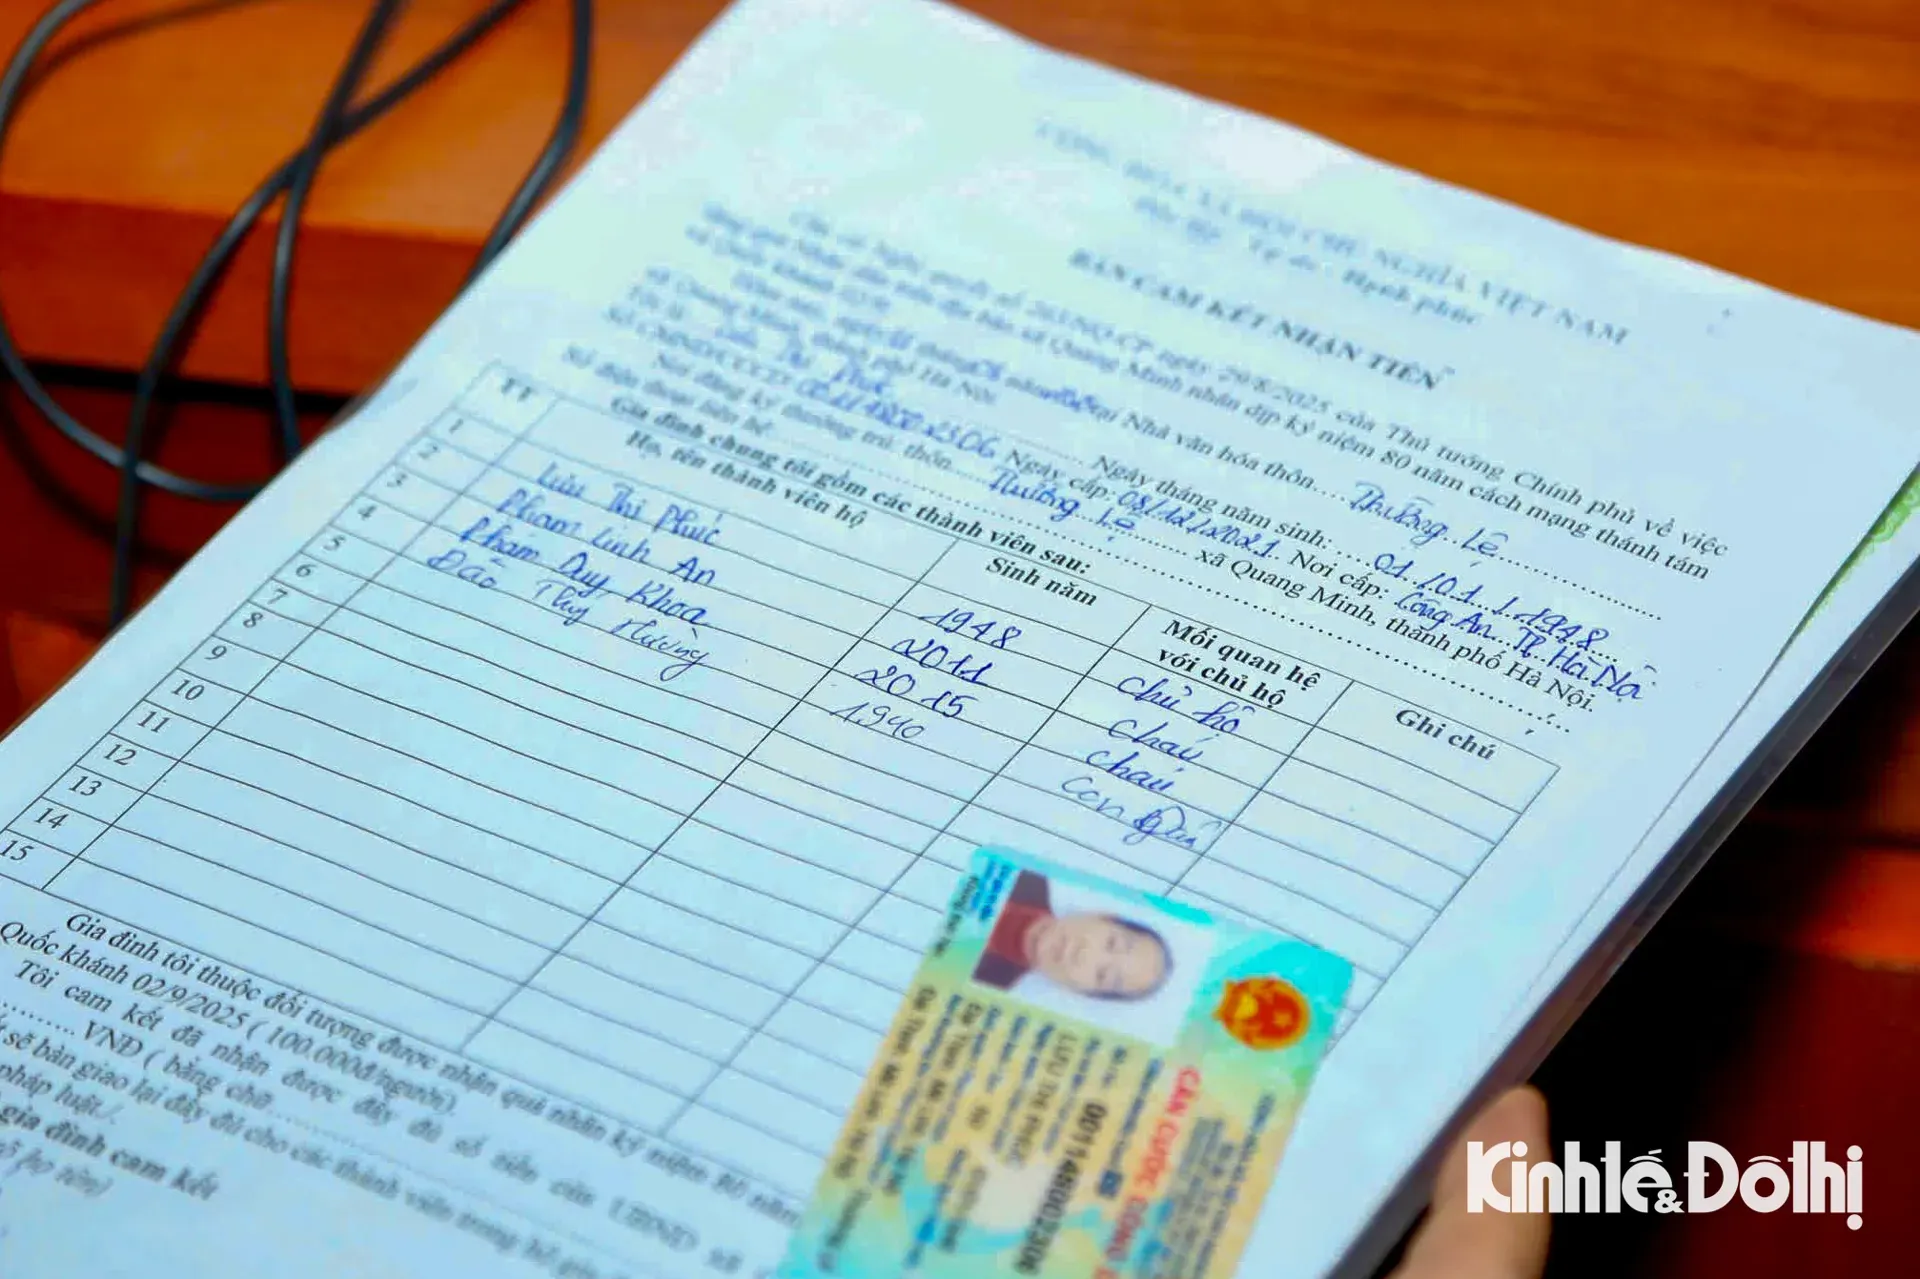 CỘNG HÒA XÃ HỘI CHỦ NGHĨA VIỆT NAM
Độc lập - Tự do - Hạnh phúc
BẢN CAM KẾT NHẬN TIỀN
Căn cứ Nghị quyết số 263/NQ-CP ngày 29/8/2025 của Thủ tướng Chính phủ về việc
nhân dân trên địa bàn xã Quang Minh nhân dịp kỷ niệm 80 năm cách mạng tháng tám
và Quốc khánh 02/9
Hôm nay, ngày tháng năm tại Nhà văn hóa thôn.... Thường Lệ
xã Quang Minh, thành phố Hà Nội
Tôi là: Lưu Thị Phúc Ngày tháng năm sinh: ... 01/01/1948
Số CMND/CCCD Ngày cấp: 08/12/2021 Nơi cấp: Công An TP Hà Nội
Nơi đăng ký thường trú: thôn.... Thường Lệ xã Quang Minh, thành phố Hà Nội.
Số điện thoại liên hệ:
Gia đình chúng tôi gồm các thành viên sau:
TT Họ, tên thành viên hộ Sinh năm Mối quan hệ với chủ hộ Ghi chú
1 Lưu Thị Phúc 1948 Chủ hộ
2 Phạm Linh An 2011 Cháu
3 Phạm Duy Khoa 2015 Cháu
4 Đào Thuy Hường 1990 Con
5
6
7
8
9
10
11
12
13
14
15
Gia đình tôi thuộc đối tượng được nhận quà nhân kỷ niệm 80 năm
Quốc khánh 02/9/2025 ( 100.000đ/người).
Tôi cam kết đã nhận được đầy đủ số tiền của UBND xã
.......... VNĐ ( bằng chữ
sẽ bàn giao lại đầy đủ cho các thành viên trong hộ gia
pháp luật./.
gia đình cam kết
họ tên)
CĂN CƯỚC CÔNG
001148002306
LƯU THỊ PHÚC
Kinhtế&Đôthị